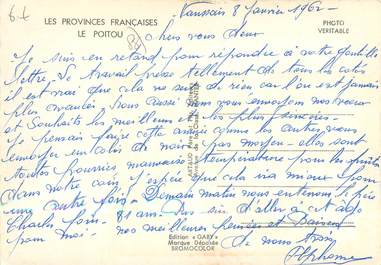 86
LES PROVINCES FRANÇAISES
LE POITOU
PHOTO
VERITABLE
Vaussais 8 Janvier 1962
Chers vous deux
Je suis en retard pour répondre à votre gentille
lettre. Le travail presse tellement de tous les cotés
il est vrai que cela ne sert de rien car l'on est jamais
plus avancé. Nous aussi nous vous envoyons nos voeux
et Souhaits les meilleurs et les plus sincères.
Je pensais faire cette année comme les autres vous
envoyer un colis de noix pas moyen elles sont
toutes pourries mauvaise température pour les fruits
dans notre coin j'espère que cela ira mieux pour
une autre fois. Demain matin nous enterrons le père
Charles 81 ans Pas sûr d'aller à cet âge
pour moi. nos meilleures pensées et Baisers
de nous trois
Alphonse
Edition « GABY »
Marque Déposée
BROMOCOLOR